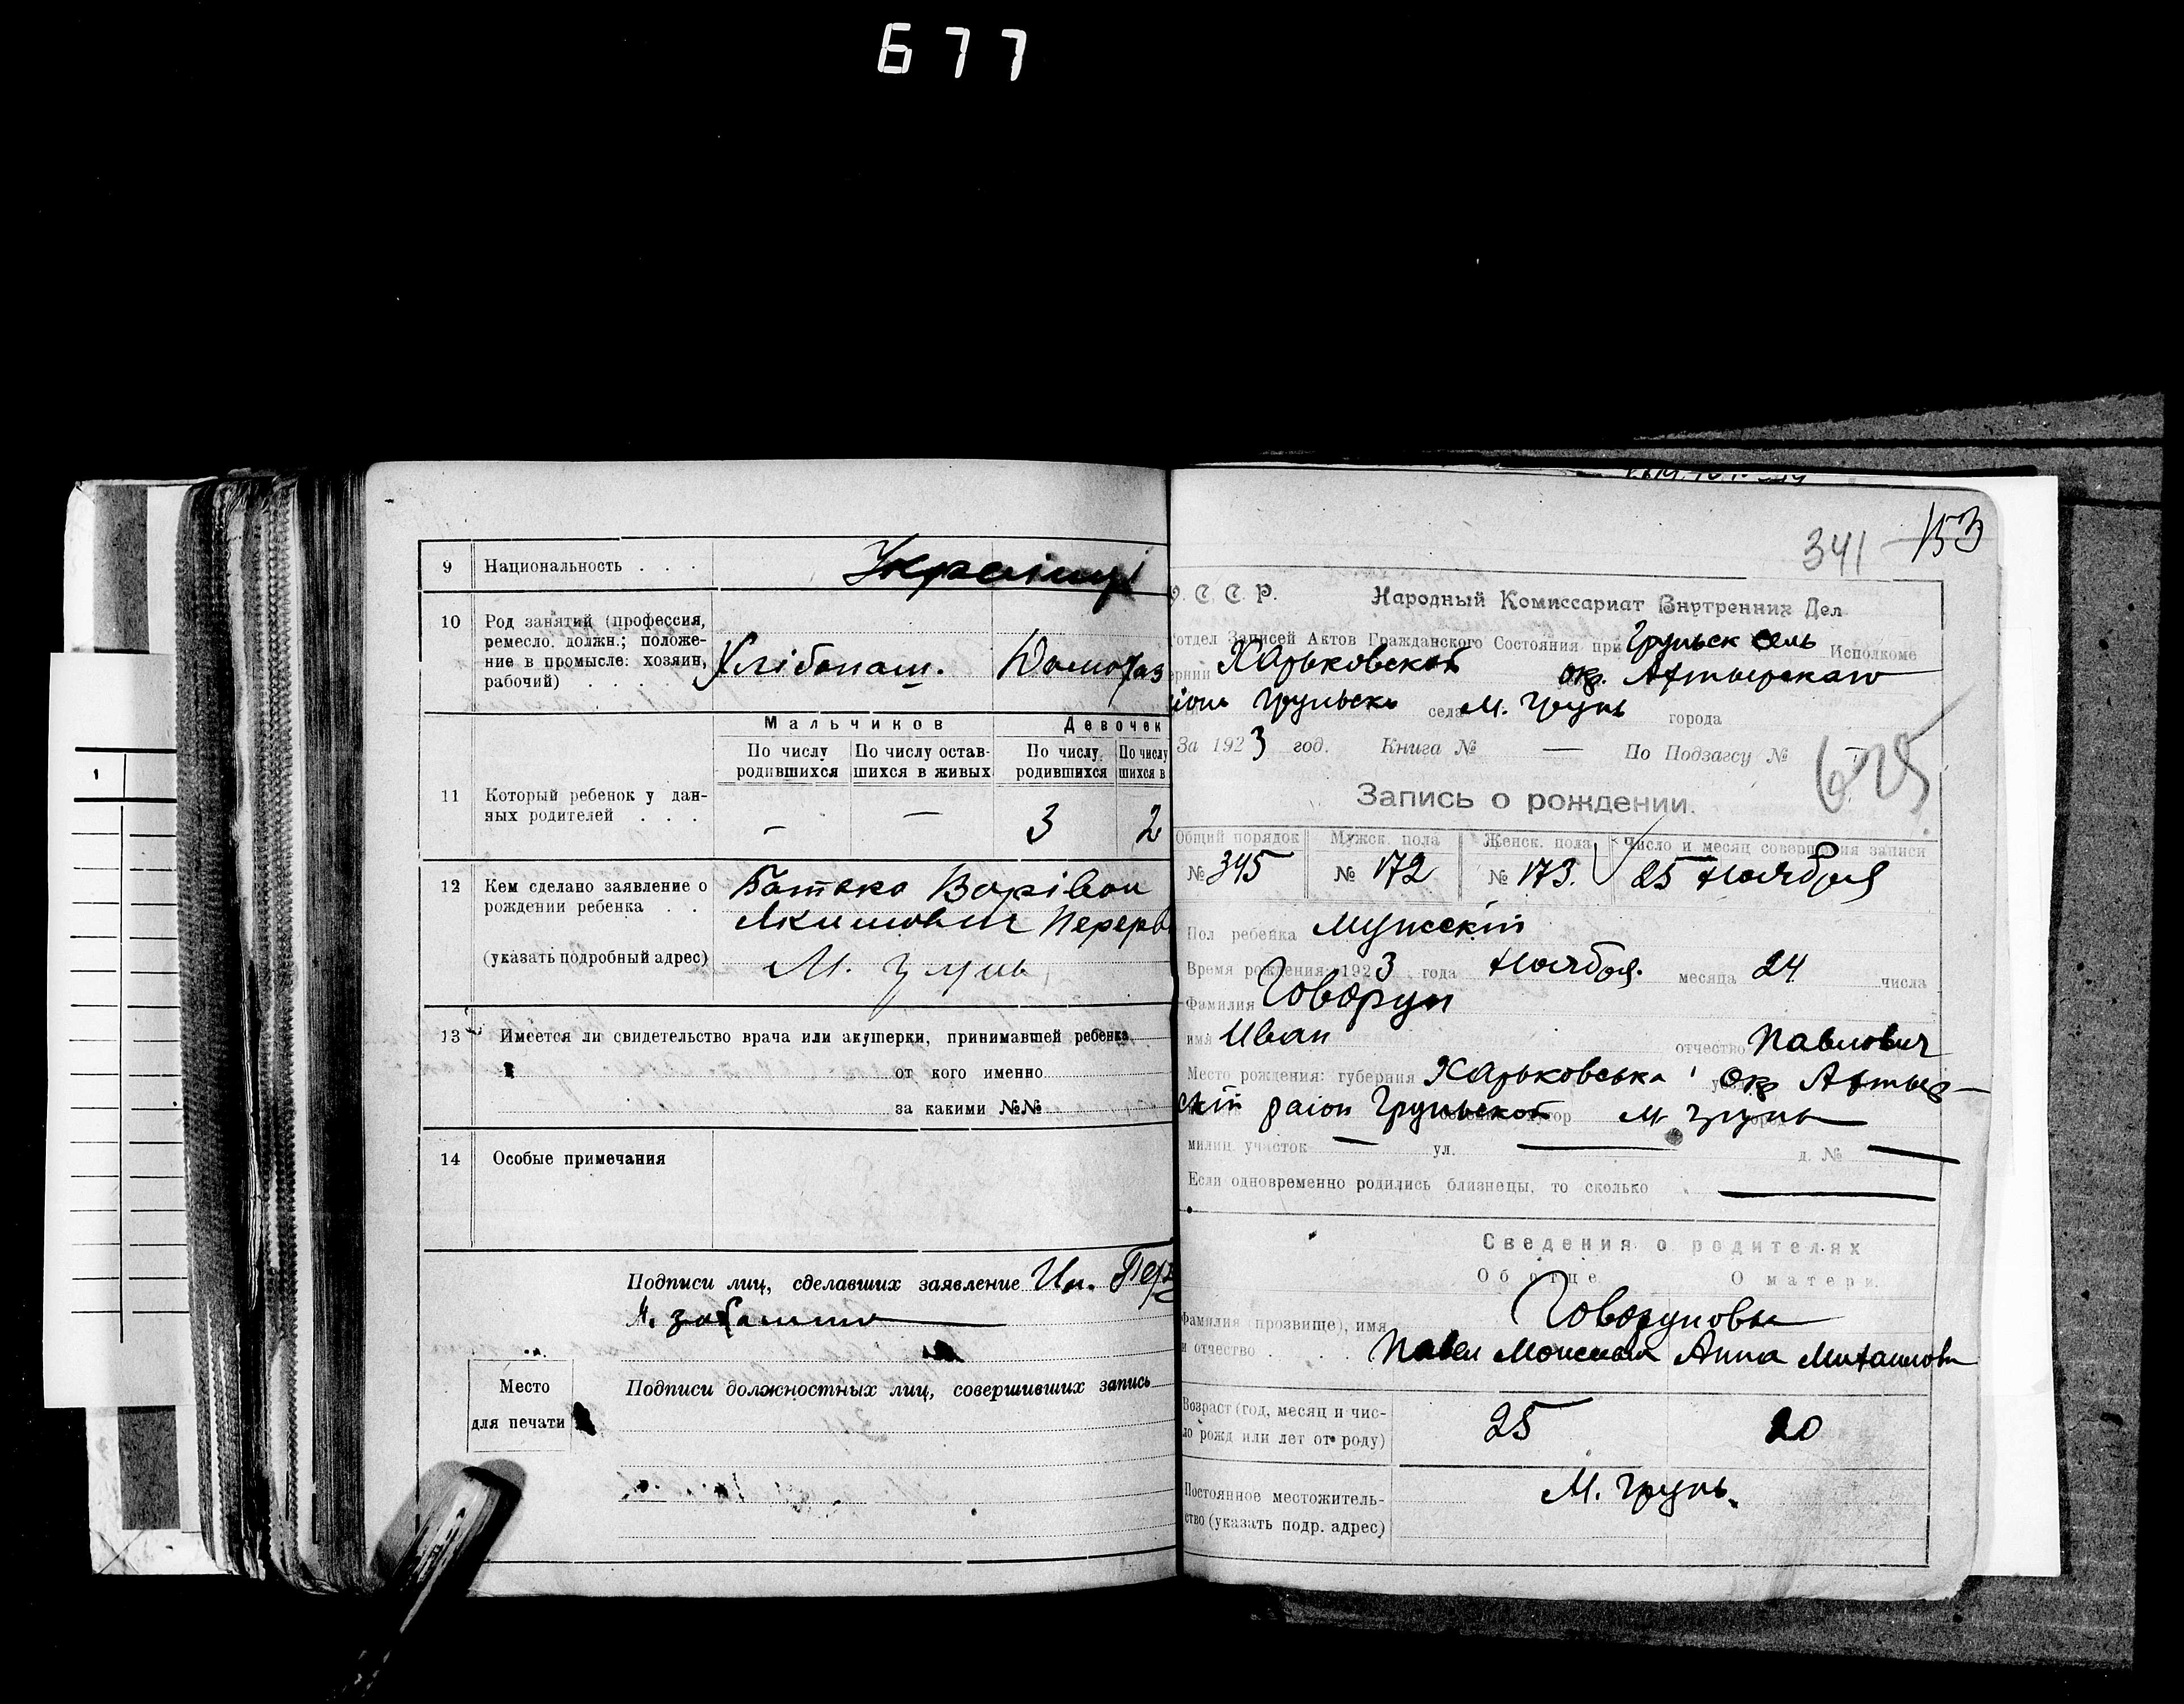 677
9 Национальность . . . Українці
10 Род занятий (профессия,
ремесло, должн.; положе-
ние в промысле: хозяин,
рабочий) . . . . Хлібопаш. Домохаз
Мальчиков Девочек
По числу родившихся По числу остав-шихся в живых По числу родившихся По числу шихся в
11 Который ребенок у дан-
ных родителей . . . — — 3 2
12 Кем сделано заявление о
рождении ребенка . .
(указать подробный адрес)
Батько Варівон
Якимович Перерв
М. Грунь
13 Имеется ли свидетельство врача или акушерки, принимавшей ребенка
от кого именно
за какими №№
14 Особые примечания
Подписи лиц, сделавших заявление
Место
для печати
Подписи должностных лиц, совершивших запись
1
341 153
У. С. С. Р. Народный Комиссариат Внутренних Дел
отдел Записей Актов Гражданского Состояния при Груньск сель Исполкоме
ернии Харьковской окр. Ахтырскаго
Груньск села М. Грунь города
За 1923 год. Книга № — По Подзагсу №
625
Запись о рождении.
Общий порядок Мужск. пола Женск. пола Число и месяц совершения записи
№ 345 № 172 № 173. 25 Ноября
Пол ребенка Мужскій
Время рождения: 1923 года Ноября. месяца 24 числа
Фамилия Говорун
имя Иван отчество Павлович
Место рождения: губерния Харьковська окр Ахтыр-
скій раіон Груньской хутор М Грунь
милиц. участок — ул. — д. № —
Если одновременно родились близнецы, то сколько —
Сведения о родителях
Об отце О матери.
Говоруновы
Фамилия (прозвище), имя
и отчество . . . Павел Моисеевич Анна Михаиловн
Возраст (год, месяц и чис-
ло рожд или лет от роду) 25 20
Постоянное местожитель-
ство (указать подр. адрес) М. Грунь.